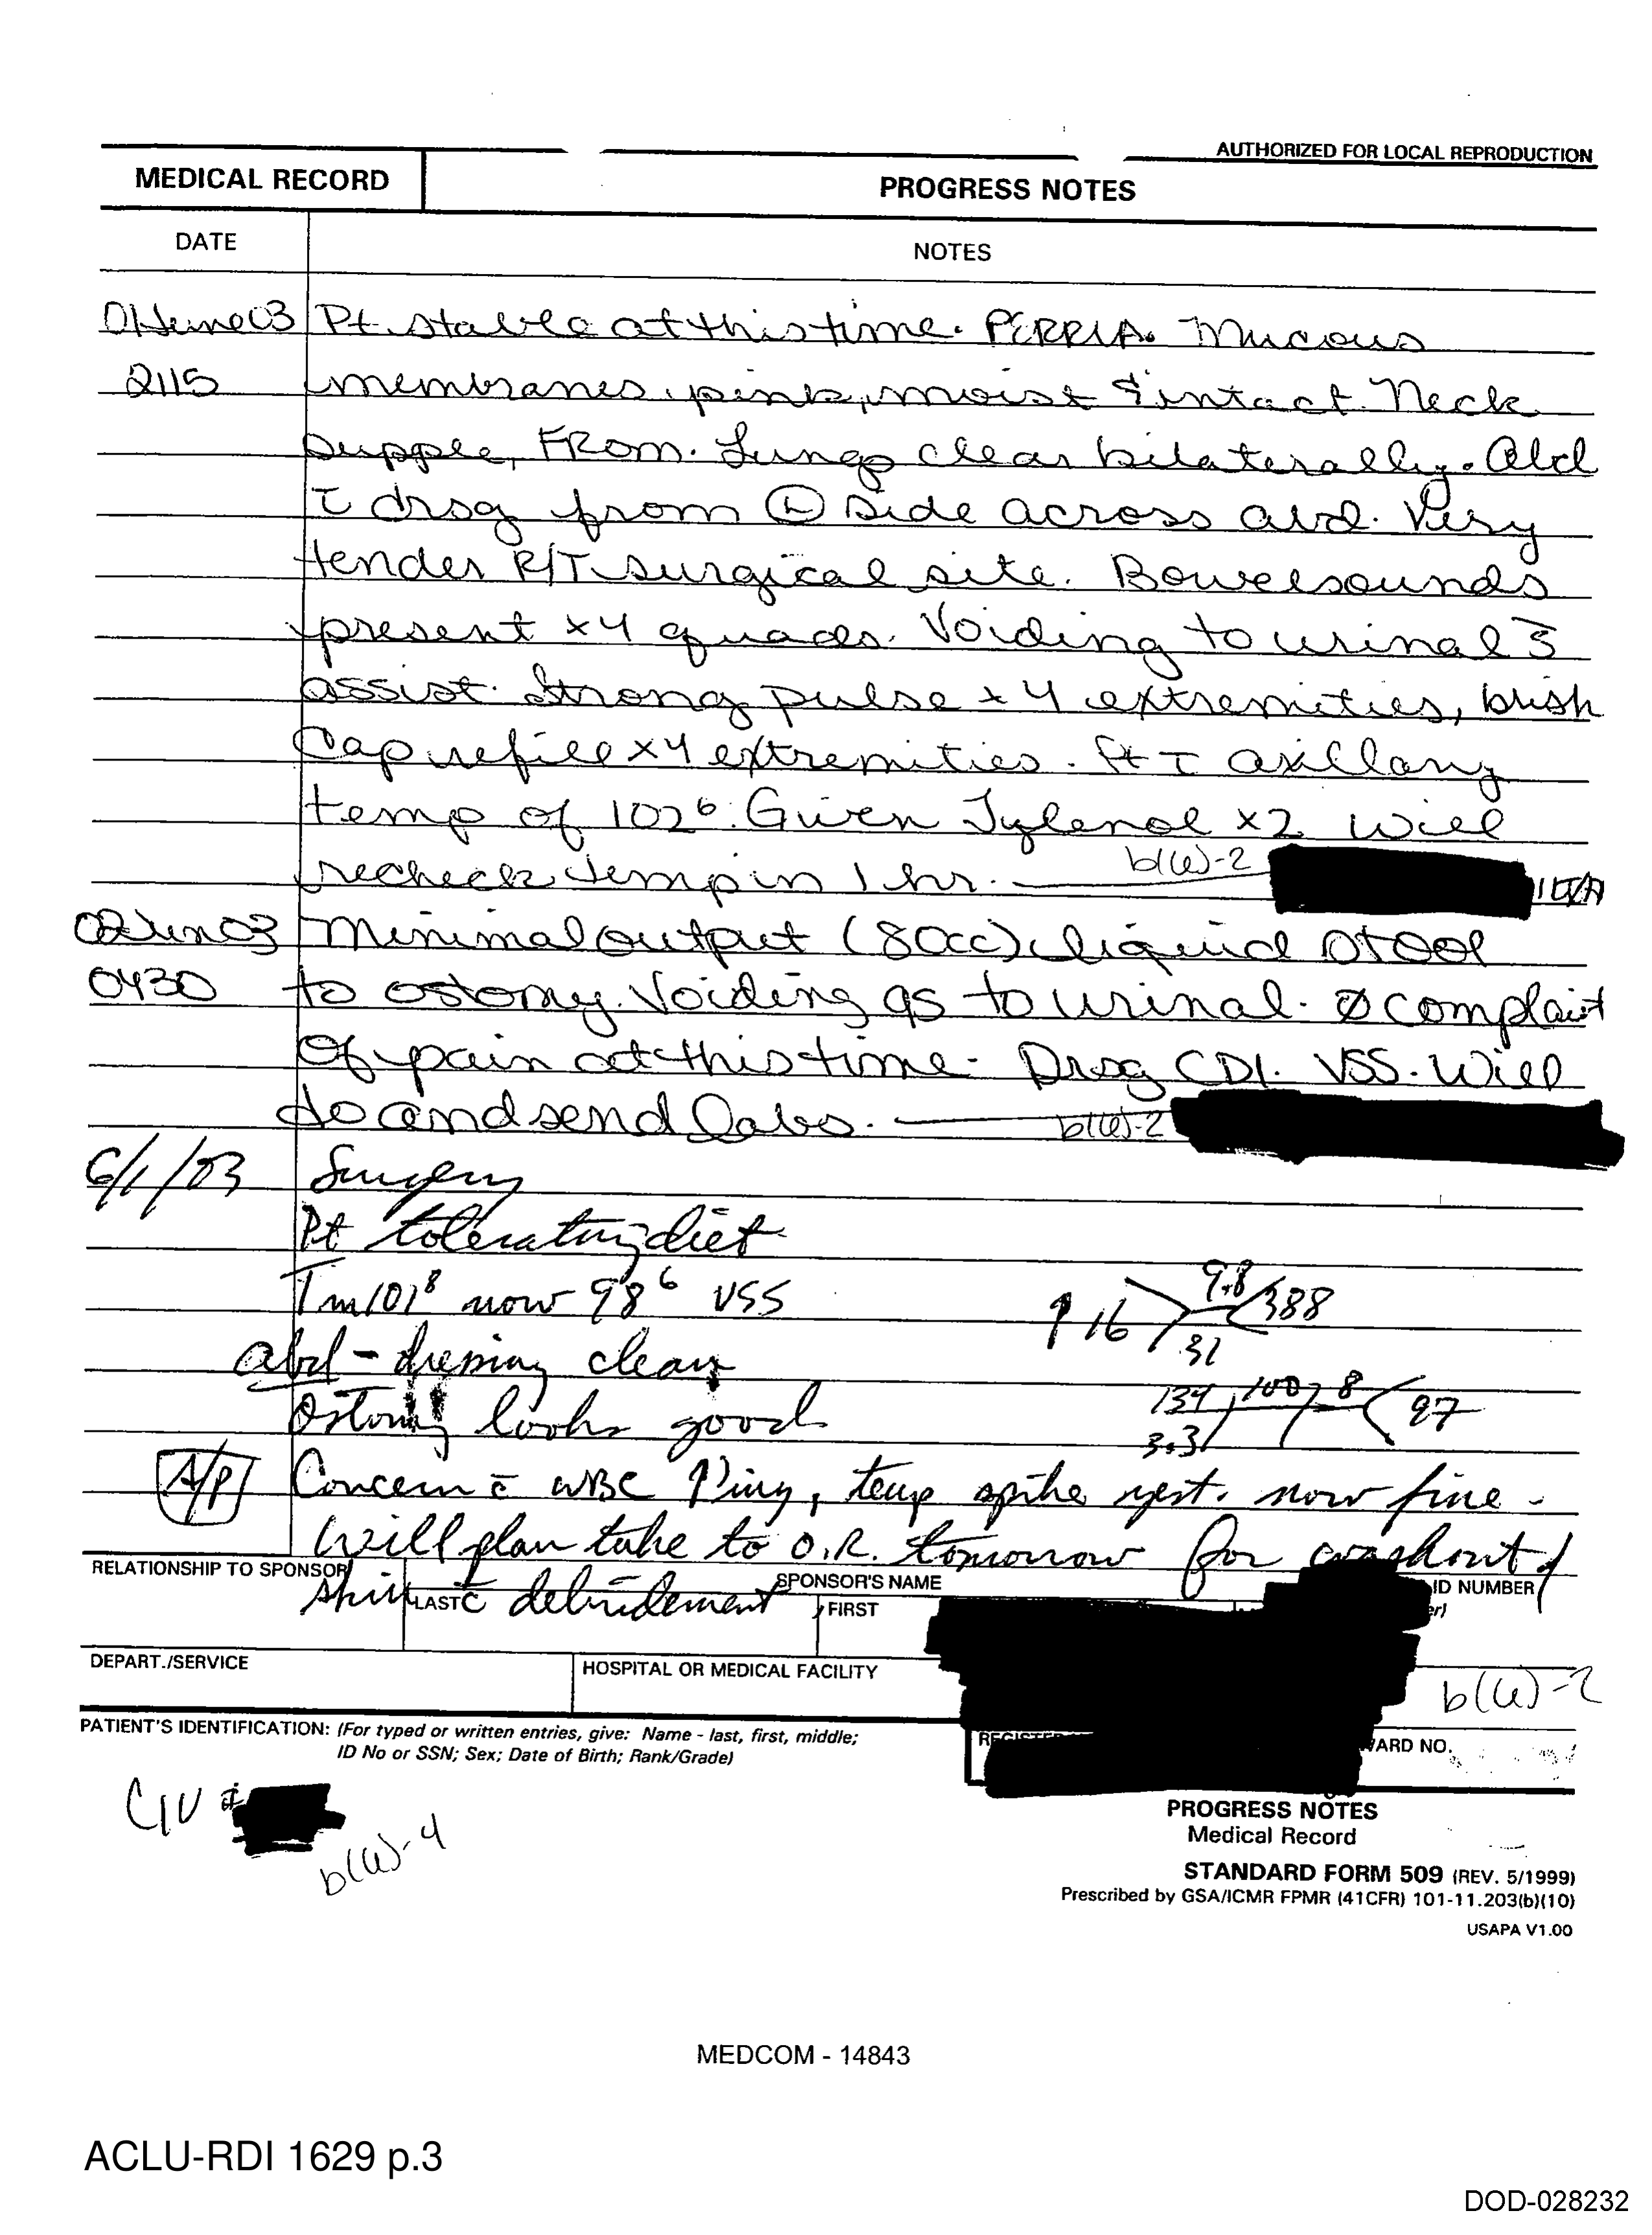 AUTHORIZED FOR LOCAL REPRODUCTION
MEDICAL RECORD
PROGRESS NOTES
DATE
NOTES
01June03 Pt stable at this time. PERRLA. Mucous
2115 membranes pink, moist & intact. Neck
supple, FROM. Lungs clear bilaterally. Abd
c̄ drsg from Ⓛ side across abd. Very
tender R/T surgical site. Bowel sounds
present x4 quads. Voiding to urinal s̄
assist. Strong pulse x 4 extremities, brisk
Cap refill x4 extremities. Pt c̄ axillary
temp of 102⁶. Given Tylenol x2 will
recheck temp in 1 hr. b(6)-2
02Jun03 Minimal output (80cc) liquid stool
0430 to ostomy. Voiding qs to urinal. Ø complaint
of pain at this time. Drsg CDI. VSS. Will
do and send labs. b(6)-2
6/1/03 Surgery
Pt tolerating diet
Tm 101⁸ now 98⁶ VSS
↑ 16 9.8 388
31
abd - dressing clean
134 100 8 97
Ostomy looks good
3.3
A/P Concern c̄ WBC ↑'ing, temp spike yest. now fine -
Will plan take to O.R. tomorrow for washout &
RELATIONSHIP TO SPONSOR
SPONSOR'S NAME
ID NUMBER
skin c̄ debridement
LAST
FIRST
er)
DEPART./SERVICE
HOSPITAL OR MEDICAL FACILITY
b(6)-2
PATIENT'S IDENTIFICATION: (For typed or written entries, give: Name - last, first, middle;
ID No or SSN; Sex; Date of Birth; Rank/Grade)
WARD NO.
CIV #
b(6)-4
PROGRESS NOTES
Medical Record
STANDARD FORM 509 (REV. 5/1999)
Prescribed by GSA/ICMR FPMR (41CFR) 101-11.203(b)(10)
USAPA V1.00
MEDCOM - 14843
ACLU-RDI 1629 p.3
DOD-028232